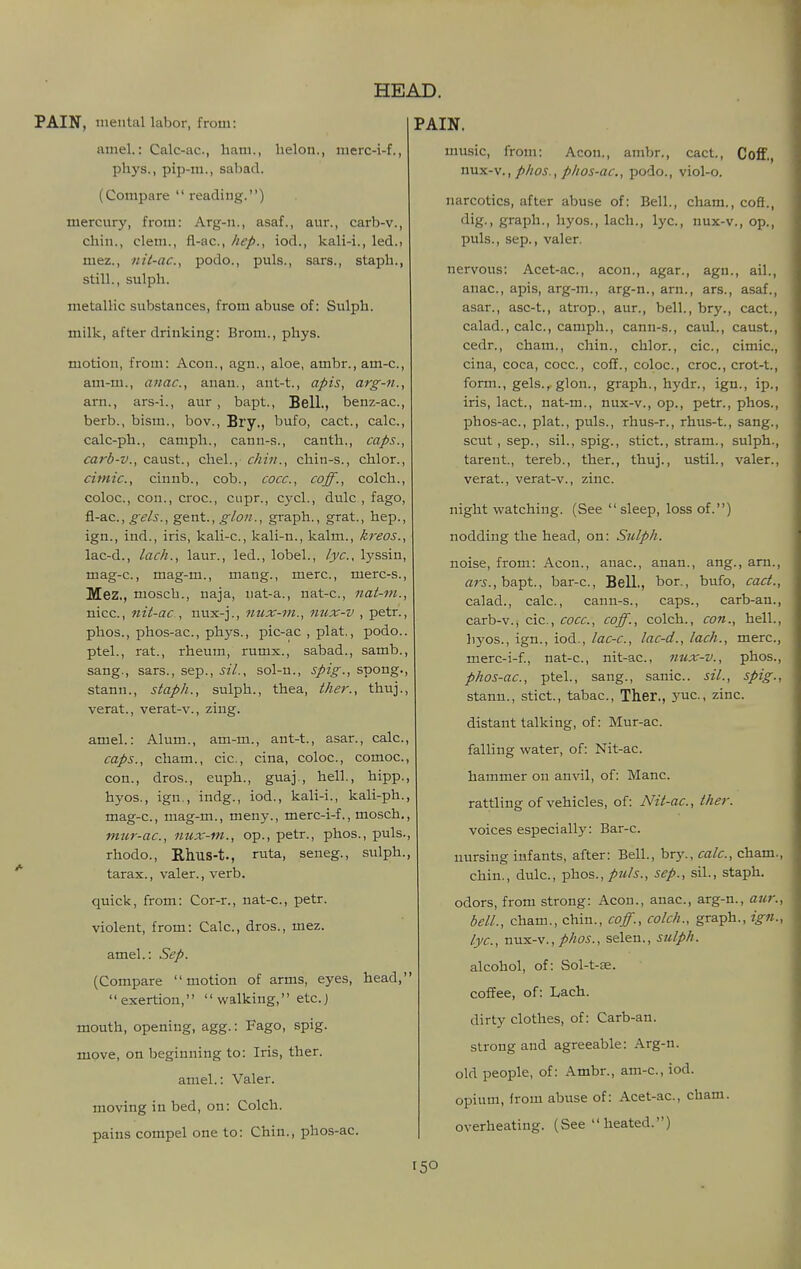 HEAD.
PAIN, mental labor, from:
amel.: Calc-ac., ham., helon., merc-i-f.,
phys., pip-m., sabad.
(Compare “ reading.”)
mercury, from: Arg-n., asaf., aur., carb-v.,
chin., clem., fl-ac., hep., iod., kali-i., led.,
mez., nit-ac., podo., puls., sars., staph.,
still., sulph.
metallic substances, from abuse of: Sulph.
milk, after drinking: Brom., phys.
motion, from: Acon., agn., aloe, ambr., am-c.,
am-m., anac., anan., ant-t., apis, arg-n.,
arn., ars-i., aur , bapt., Bell., benz-ac.,
berb., bism., bov., Bry., bufo, cact., calc.,
calc-ph., camph., cann-s., canth., caps.,
carb-v., caust., chel., chin., chin-s., chlor.,
cimic., cinnb., cob., cocc., coff., colch.,
coloc., con., croc., cupr., cycl., dulc , fago,
fl-ac., gels., gent., glon., graph., grat., hep.,
ign., ind., iris, kali-c., kali-n., kalm., kreos.,
lac-d., lach., laur., led., lobel., lyc., lyssin,
mag-c., mag-m., mang., merc., merc-s.,
Mez., mosch., naja, nat-a., nat-c., nat-m.,
nicc., nit-ac , nux-j., nux-m., nux-v , petr.,
phos., phos-ac., phys., pic-ac , plat., podo..
ptel., rat., rheum, rumx., sabad., samb.,
sang., sars., sep., sil., sol-n., spig., spong.,
stann., staph., sulph., thea, ther., thuj.,
verat., verat-v., zing.
amel.: Alum., am-m., ant-t., asar., calc.,
caps., cham., cic., cina, coloc., comoc.,
con., dros., euph., guaj , hell., hipp.,
hyos., ign., indg., iod., kali-i., kali-ph.,
mag-c., mag-m., meny., merc-i-f., mosch.,
mur-ac., nux-m., op., petr., phos., puls.,
rhodo., Rhus-t., ruta, seneg., sulph.,
tarax., valer., verb.
quick, from: Cor-r., nat-c., petr.
violent, from: Calc., dros., mez.
amel.: Sep.
(Compare “ motion of arms, eyes, head,”
“ exertion,” “ walking,” etc.)
mouth, opening, agg.: Fago, spig.
move, on beginning to: Iris, ther.
amel.: Valer.
moving in bed, on: Colch.
pains compel one to: Chin., phos-ac.
PAIN.
music, from: Acon., ambr., cact., Coff.,
nux-v., phos., phos-ac., podo., viol-o.
narcotics, after abuse of: Bell., cham., coff.,
dig., graph., hyos., lach., lyc., nux-v., op.,
puls., sep., valer.
nervous: Acet-ac., acon., agar., agn., ail.,
anac., apis, arg-m., arg-n., arn., ars., asaf.,
asar., asc-t., atrop., aur., bell., bry., cact.,
calad., calc., camph., cann-s., caul., caust.,
cedr., cham., chin., chlor., cic., cimic.,
cina, coca, cocc., coff., coloc., croc., crot-t.,
form., gels., glon., graph., hydr., ign., ip.,
iris, lact., nat-m., nux-v., op., petr., phos.,
phos-ac., plat., puls., rhus-r., rhus-t., sang.,
scut , sep., sil., spig., stict., stram., sulph.,
tarent., tereb., ther., thuj., ustil., valer.,
verat., verat-v., zinc.
night watching. (See “ sleep, loss of.”)
nodding the head, on: Sulph.
noise, from: Acon., anac., anan., ang., arn.,
ars., bapt., bar-c., Bell., bor., bufo, cact.,
calad., calc., cann-s., caps., carb-an.,
carb-v., cic., cocc., coff., colch., con., hell.,
hyos., ign., iod., lac-c., lac-d., lach., merc.,
merc-i-f., nat-c., nit-ac., nux-v., phos.,
phos-ac., ptel., sang., sanic.. sil., spig.,
stann., stict., tabac., Ther., yuc., zinc.
distant talking, of: Mur-ac.
falling water, of: Nit-ac.
hammer on anvil, of: Manc.
rattling of vehicles, of: Nit-ac., ther.
voices especially: Bar-c.
nursing infants, after: Bell., bry., calc., cham.,
chin., dulc., phos., puls., sep., sil., staph.
odors, from strong: Acon., anac., arg-n., aur.,
bell., cham., chin., coff., colch., graph., ign.,
lyc., nux-v., phos., selen., sulph.
alcohol, of: Sol-t-æ.
coffee, of: Lach.
dirty clothes, of: Carb-an.
strong and agreeable: Arg-n.
old people, of: Ambr., am-c., iod.
opium, from abuse of: Acet-ac., cham.
overheating. (See “ heated.”)
150